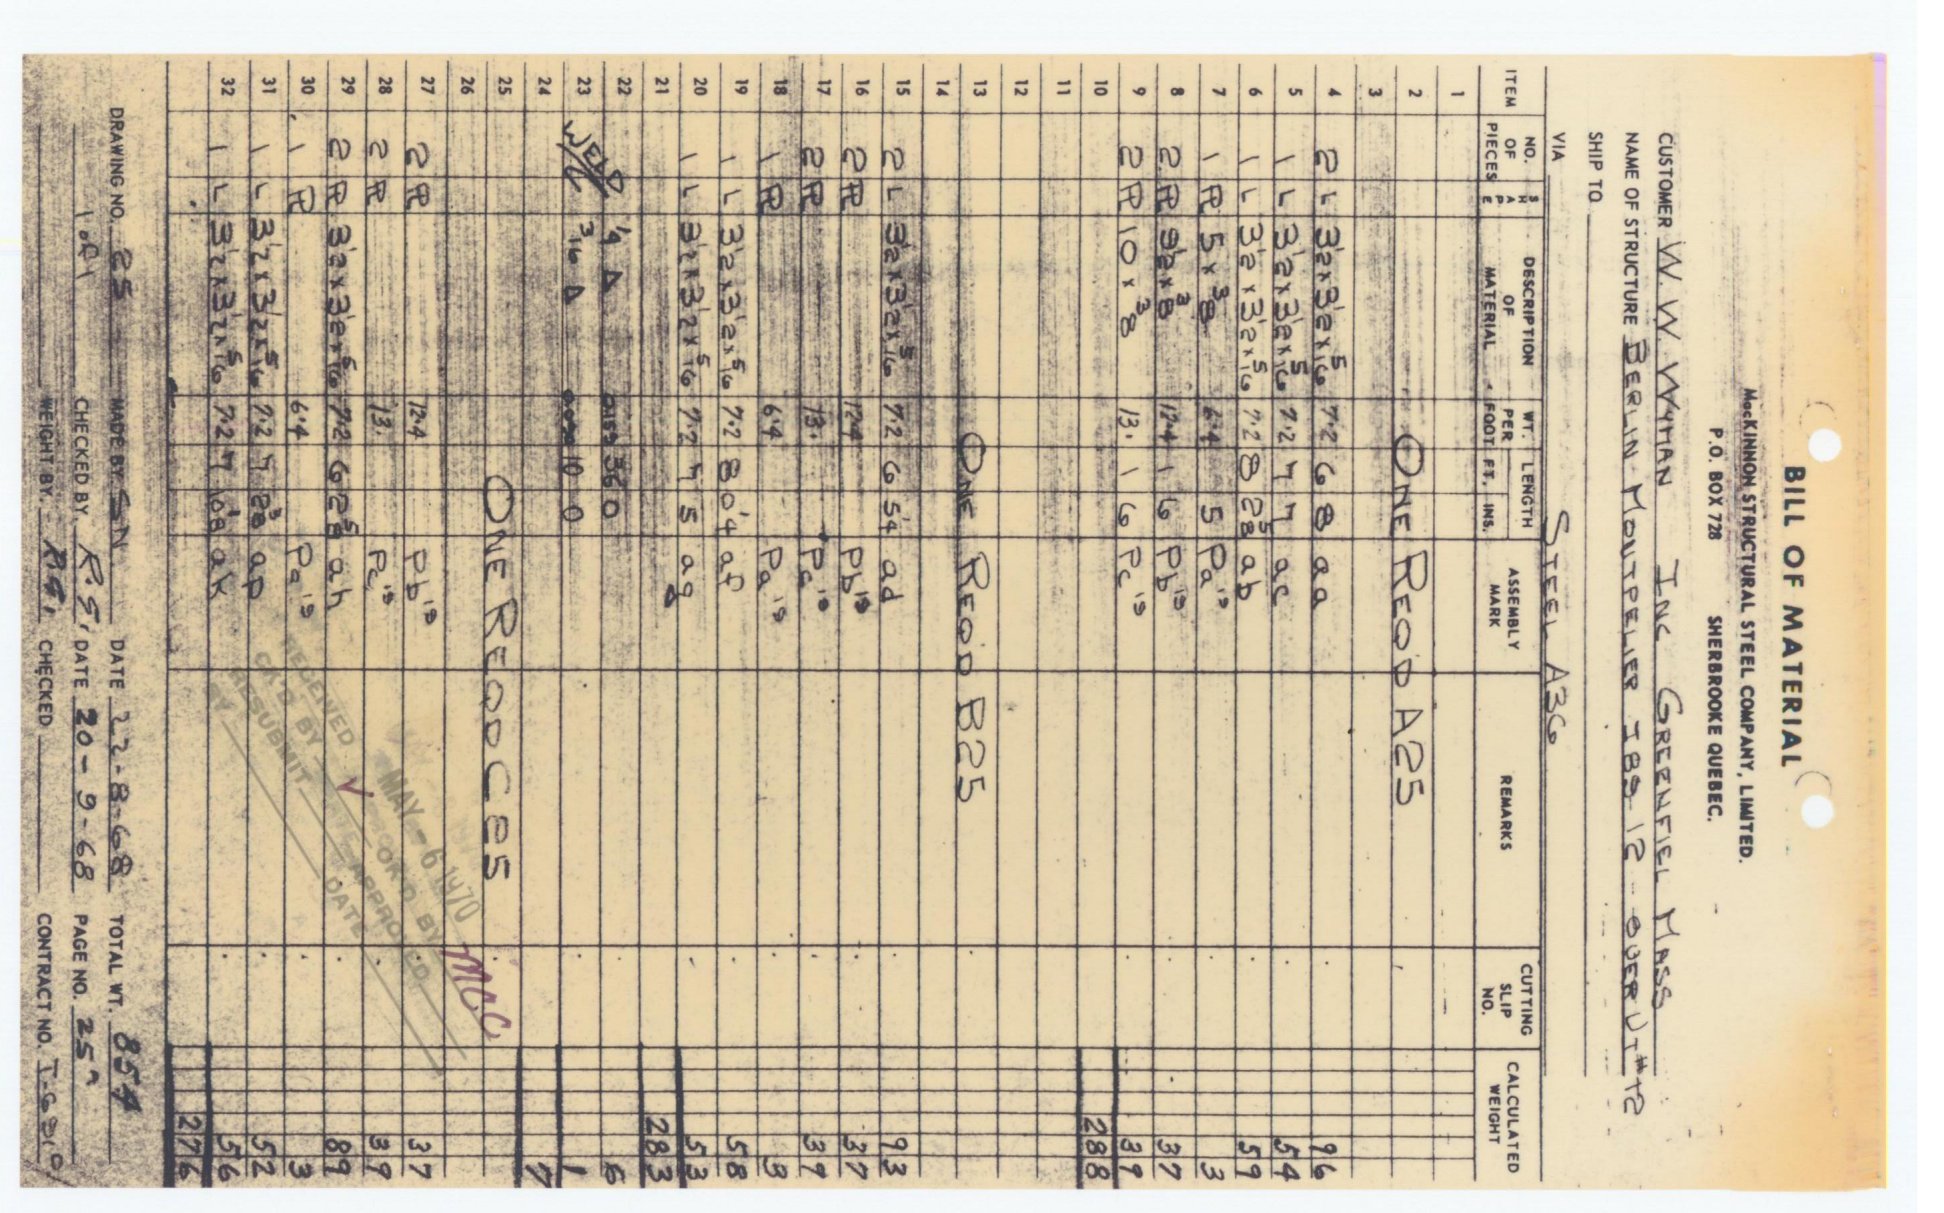 BILL OF MATERIAL
MacKINNON STRUCTURAL STEEL COMPANY, LIMITED.
P.O. BOX 728 SHERBROOKE QUEBEC.
CUSTOMER W. W. WYMAN INC GREENFIEL MASS
NAME OF STRUCTURE BERLIN MONTPELIER I89 12 OVER VT #12
SHIP TO
VIA STEEL A36
ITEM NO. OF PIECES SHAPE DESCRIPTION OF MATERIAL WT. PER FOOT LENGTH FT. INS. ASSEMBLY MARK REMARKS CUTTING SLIP NO. CALCULATED WEIGHT
1
2 ONE REQD A25
3
4 2 L 3½ x 3½ x 5/16 7.2 6 8 aa 96
5 1 L 3½ x 3½ x 5/16 7.2 7 7 ac 54
6 1 L 3½ x 3½ x 5/16 7.2 8 2 5/8 ab 59
7 1 PL 5 x 3/8 6.4 5 Pa 19 3
8 2 PL 9½ x 3/8 12.4 1 6 Pb 19 37
9 2 PL 10 x 3/8 13. 1 6 Pc 19 39
10 288
11
12
13 ONE REQ'D B25
14
15 2 L 3½ x 3½ x 5/16 7.2 6 5¼ ad 93
16 2 PL 12.4 Pb 19 37
17 2 PL 13. Pc 19 39
18 1 PL 6.4 Pa 19 3
19 1 L 3½ x 3½ x 5/16 7.2 8 0¼ af 58
20 1 L 3½ x 3½ x 5/16 7.2 7 5 ag 53
21 283
22 WELD ¼ 360 6
23 3/16 10 0 1
24 7
25 ONE REQD C25
26
27 2 PL 12.4 Pb 19 37
28 2 PL 13. Pc 19 39
29 2 PL 3½ x 3½ x 5/16 7.2 6 2 5/8 ah 89
30 1 PL 6.4 Pa 19 3
31 1 L 3½ x 3½ x 5/16 7.2 7 2 3/8 ap 52
32 1 L 3½ x 3½ x 5/16 7.2 7 ak 56
276
RECEIVED MAY - 6 1970
CK'D BY ✓ COR'D BY MCC
RESUBMIT APPROVED
BY DATE
DRAWING NO. 25 MADE BY SN DATE 22-8-68 TOTAL WT. 854
1 of 1 CHECKED BY. R.S. DATE 20-9-68 PAGE NO. 25A
WEIGHT BY. R.S. CHECKED CONTRACT NO.